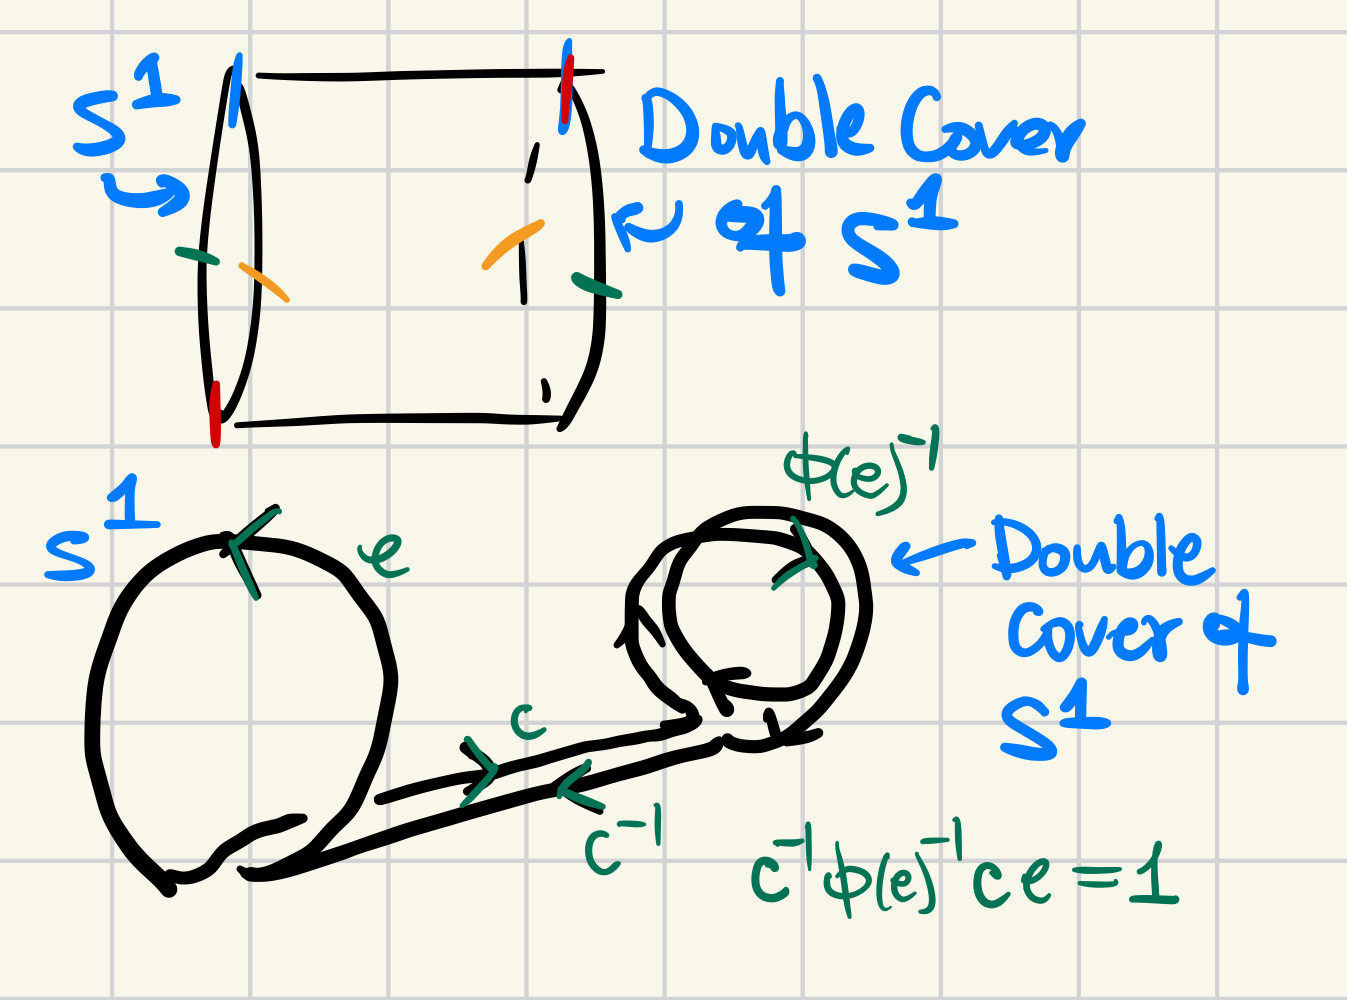 S¹
Double Cover
of S¹
ϕ(e)⁻¹
S¹
e
Double
Cover of
S¹
c
c⁻¹
c⁻¹ϕ(e)⁻¹ce=1